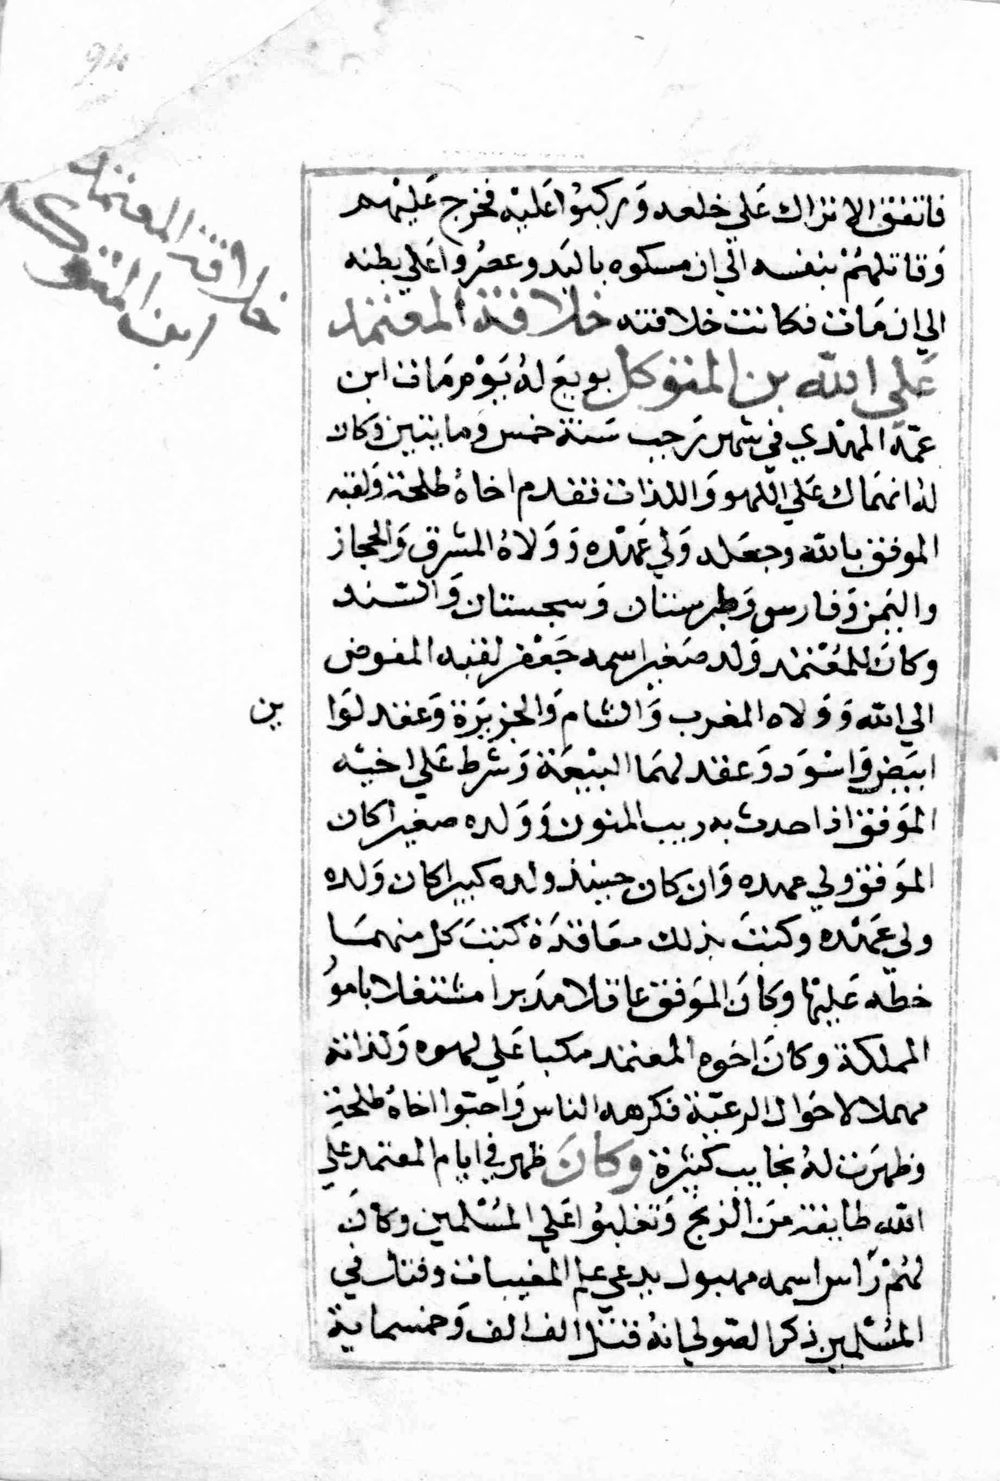 94
خلافة المعتمد
ابن المتوكل
فاتفق الاتراك علي خلعه وركبوا عليه فخرج عليهم
وقاتلهم بنفسه الي ان مسكوه باليد وعصروا علي بطنه
الي ان مات فكانت خلافته خلافة المعتمد
علي الله بن المتوكل بويع له يوم مات ابن
عمه المهتدي في شهر رجب سنة خمس ومايتين وكان
له انهماك علي اللهو واللذات فقدم اخاه طلحة ولقبه
الموفق بالله وجعله ولي عهده وولاه المشرق والحجاز
واليمن وفارس وطبرستان وسجستان والسند
وكان للمعتمد ولد صغير اسمه جعفر لقبه المفوض
الي الله وولاه المغرب والشام والجزيرة وعقد لوا
ين
ابيض واسود وعقد لهما البيعة وشرط علي اخيه
الموفق اذا حدث به ريب المنون وولده صغير اكان
الموفق ولي عهده وان كان حينئذ ولده كبيرا كان ولده
ولي عهده وكتب بذلك معاقدة كتب كل منهما
خطه عليها وكان الموفق عاقلا مدبرا مشتغلا بامور
المملكة وكان اخوه المعتمد مكبا علي لهوه ولذاته
مهملا لاحوال الرعية فكرهه الناس واحبوا اخاه طلحة
وظهرت له نجايب كثيرة وكان ظهر في ايام المعتمد علي
الله طايفة من الزنج وتغلبوا علي المسلمين وكان
لهم راس اسمه مهبول يدعي علم المغيبات وقتل في
المسلمين ذكر الصولي انه قتل الف الف وخمسماية